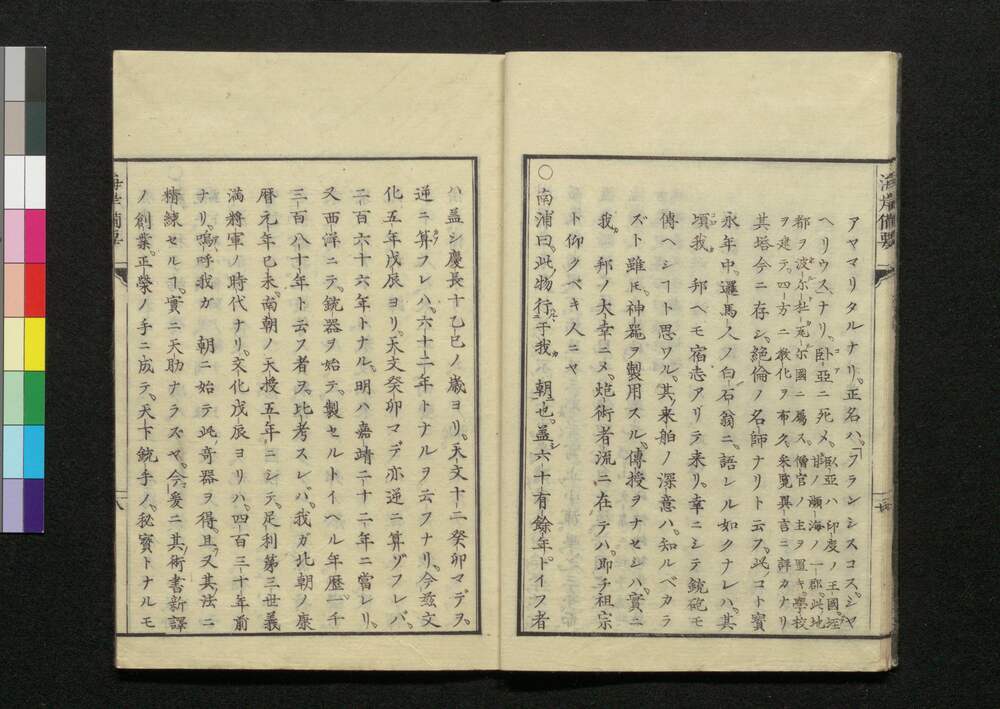 アママリタルナリ。正名ハ、「フランシスコス、シヤ
ヘリウスナリ。臥亞ニ死メ。臥亞ハ、印度ノ王國
瀬海ノ一郡。此地
都ヲ波尓杜瓦尓國ニ屬ス。僧官ノ主ヲ置キ。學校
ヲ建テ。四方ニ教化ヲ布ク。采覧異言ニ詳カナリ
其塔今ニ存シ、絶倫ノ名師ナリト云フ。此コト寳
永年中。邏馬人ノ白石翁ニ、語レル如クナレハ。其
頃我。邦ヘモ宿志アリテ来リ。幸ニシテ銃砲モ
傳ヘシヿト思ワル。其来舶ノ深意ハ。知ルベカラ
ズト雖𪜈。神器ヲ製用スル。傳授ヲナセシハ。實ニ
我。邦ノ大幸ニメ。炮術者流ニ在テハ。即チ祖宗
ト仰クベキ人ニヤ
○南浦曰。此物行于我 朝也。蓋六十有餘年。トイフ者
ハ蓋シ慶長十乙巳ノ歳ヨリ。天文十二癸卯マデヲ。
逆ニ算フレハ。六十二年トナルヲ云フナリ。今茲文
化五年戊辰ヨリ。天文癸卯マデ亦逆ニ算ヅフレバ。
二百六十六年トナル。明ハ嘉靖二十二年ニ當レリ。
又西洋ニテ。銃器ヲ始テ。製セルトイヘル年歴。一千
三百八十年ト云フ者ヲ。比考スレバ。我ガ北朝ノ康
暦元年己未南朝ノ天授五年ニシテ。足利第三世義
満將軍ノ時代ナリ。文化戊辰ヨリハ。四百三十年前
ナリ。嗚呼我ガ 朝ニ始テ此奇器ヲ得。且又其法ニ
精練セルヿ。實ニ天助ナラズヤ。今爰ニ其術書新譯
ノ創業。正榮ノ手ニ成テ。天下銃手ノ。秘寳トナルモ